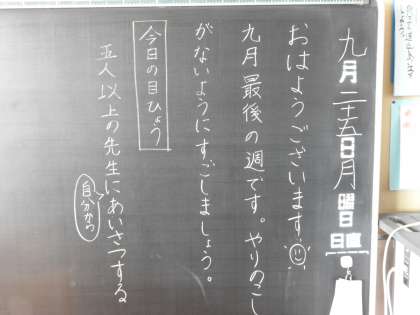 九月二十五日月曜日
日直
おはようございます
九月最後の週です。やりのこし
がないようにすごしましょう。
今日の目ひょう
五人以上の先生にあいさつする
自分から